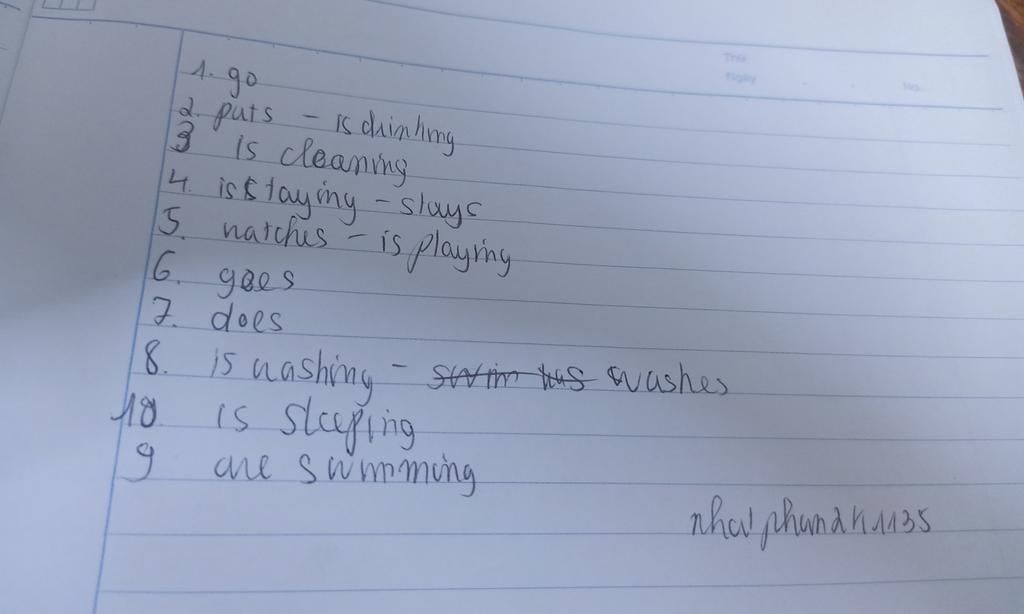 Thứ
Ngày
No.
1. go
2. puts - is drinking
3 is cleaning
4. is staying - stays
5. watches - is playing
6. goes
7. does
8. is washing - swim has washes
10 is sleeping
9 are swimming